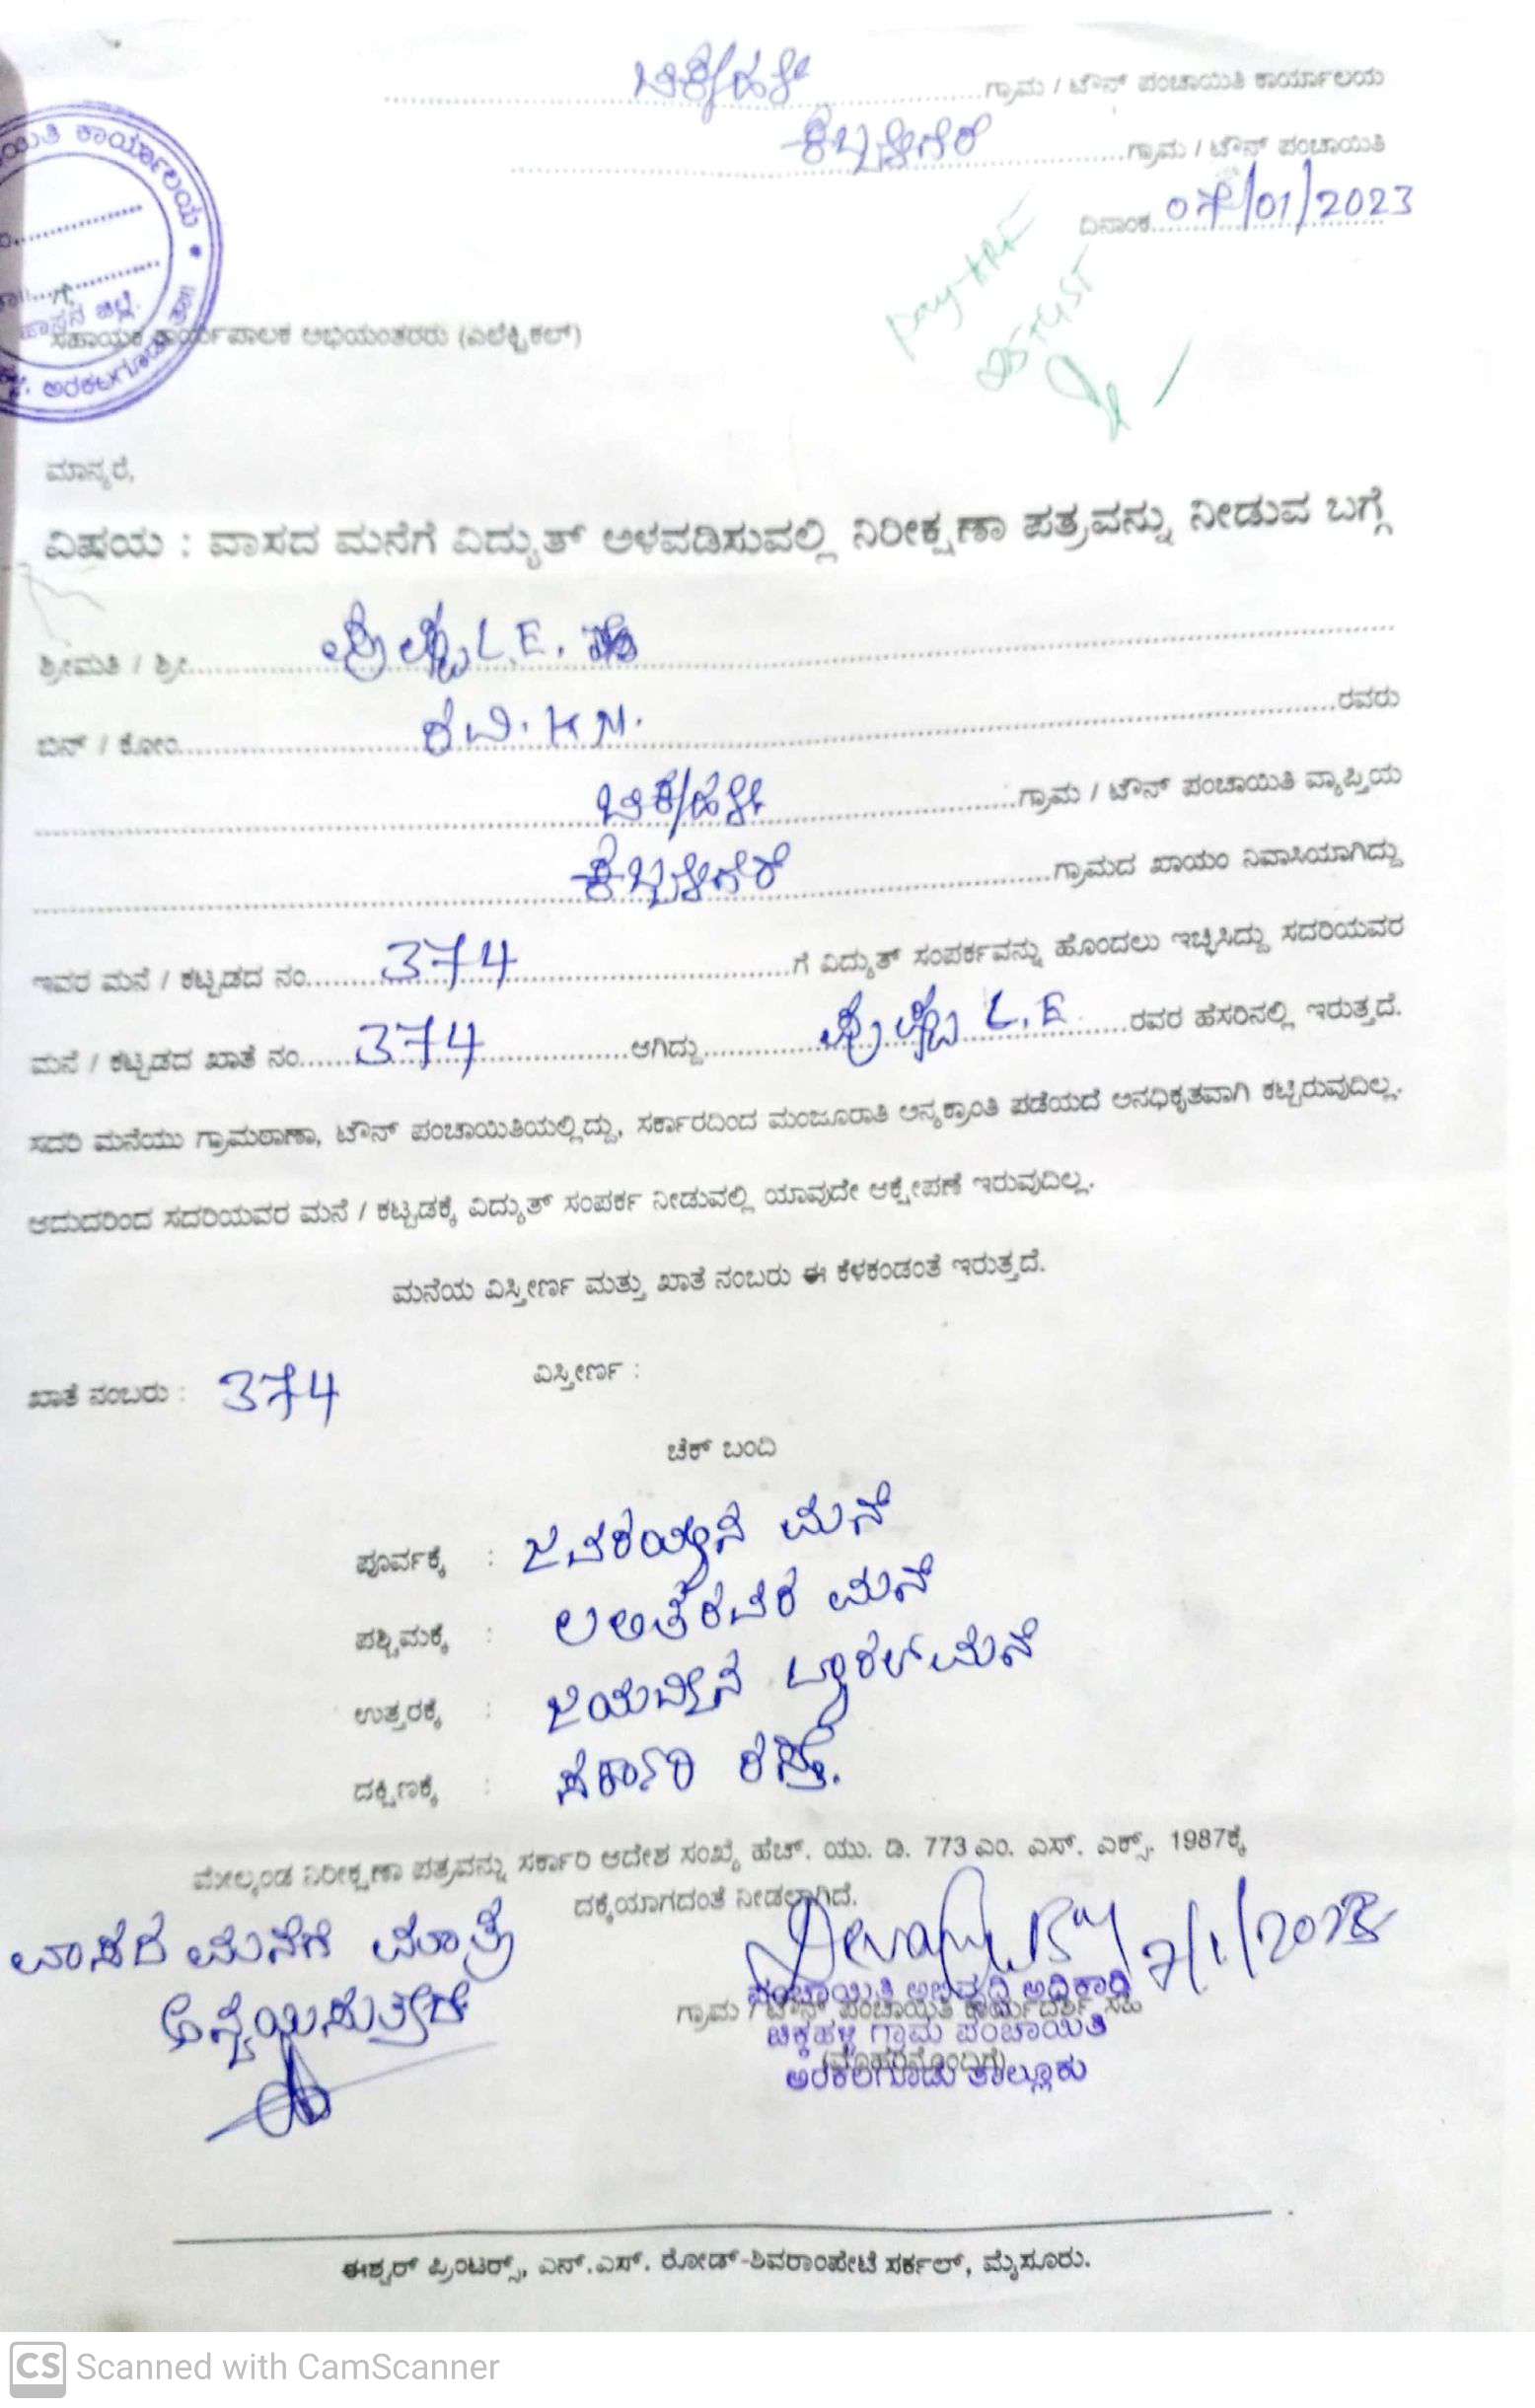 ಚಿಕ್ಕಹಳ್ಳಿ ಗ್ರಾಮ / ಟೌನ್ ಪಂಚಾಯಿತಿ ಕಾರ್ಯಾಲಯ
ಗ್ರಾಮ / ಟೌನ್ ಪಂಚಾಯಿತಿ
ದಿನಾಂಕ 07/01/2023
ಯಿತಿ ಕಾರ್ಯಾಲಯ
ಗೆ,
ಹಾಸನ ಜಿಲ್ಲೆ.
ಸಹಾಯಕ ಕಾರ್ಯಪಾಲಕ ಅಭಿಯಂತರರು (ಎಲೆಕ್ಟ್ರಿಕಲ್)
ಮಾನ್ಯರೆ,
ವಿಷಯ : ವಾಸದ ಮನೆಗೆ ವಿದ್ಯುತ್ ಅಳವಡಿಸುವಲ್ಲಿ ನಿರೀಕ್ಷಣಾ ಪತ್ರವನ್ನು ನೀಡುವ ಬಗ್ಗೆ
ಶ್ರೀಮತಿ / ಶ್ರೀ L.E.
ಬಿನ್ / ಕೋಂ ರವಿ. H M. ರವರು
ಚಿಕ್ಕಹಳ್ಳಿ ಗ್ರಾಮ / ಟೌನ್ ಪಂಚಾಯಿತಿ ವ್ಯಾಪ್ತಿಯ
ಗ್ರಾಮದ ಖಾಯಂ ನಿವಾಸಿಯಾಗಿದ್ದು
ಇವರ ಮನೆ / ಕಟ್ಟಡದ ನಂ. 374 ಗೆ ವಿದ್ಯುತ್ ಸಂಪರ್ಕವನ್ನು ಹೊಂದಲು ಇಚ್ಛಿಸಿದ್ದು ಸದರಿಯವರ
ಮನೆ / ಕಟ್ಟಡದ ಖಾತೆ ನಂ. 374 ಆಗಿದ್ದು L.E ರವರ ಹೆಸರಿನಲ್ಲಿ ಇರುತ್ತದೆ.
ಸದರಿ ಮನೆಯು ಗ್ರಾಮಠಾಣಾ, ಟೌನ್ ಪಂಚಾಯಿತಿಯಲ್ಲಿದ್ದು, ಸರ್ಕಾರದಿಂದ ಮಂಜೂರಾತಿ ಅನ್ಯಕ್ರಾಂತಿ ಪಡೆಯದೆ ಅನಧಿಕೃತವಾಗಿ ಕಟ್ಟಿರುವುದಿಲ್ಲ.
ಆದುದರಿಂದ ಸದರಿಯವರ ಮನೆ / ಕಟ್ಟಡಕ್ಕೆ ವಿದ್ಯುತ್ ಸಂಪರ್ಕ ನೀಡುವಲ್ಲಿ ಯಾವುದೇ ಆಕ್ಷೇಪಣೆ ಇರುವುದಿಲ್ಲ.
ಮನೆಯ ವಿಸ್ತೀರ್ಣ ಮತ್ತು ಖಾತೆ ನಂಬರು ಈ ಕೆಳಕಂಡಂತೆ ಇರುತ್ತದೆ.
ಖಾತೆ ನಂಬರು : 374 ವಿಸ್ತೀರ್ಣ :
ಚೆಕ್ ಬಂದಿ
ಪೂರ್ವಕ್ಕೆ : ಜವರಯ್ಯನ ಮನೆ
ಪಶ್ಚಿಮಕ್ಕೆ : ಲಲಿತರವರ ಮನೆ
ಉತ್ತರಕ್ಕೆ : ಮನೆ
ದಕ್ಷಿಣಕ್ಕೆ : ಸರ್ಕಾರಿ ರಸ್ತೆ.
ಮೇಲ್ಕಂಡ ನಿರೀಕ್ಷಣಾ ಪತ್ರವನ್ನು ಸರ್ಕಾರಿ ಆದೇಶ ಸಂಖ್ಯೆ ಹೆಚ್. ಯು. ಡಿ. 773 ಎಂ. ಎಸ್. ಎಕ್ಸ್. 1987ಕ್ಕೆ
ದಕ್ಕೆಯಾಗದಂತೆ ನೀಡಲಾಗಿದೆ.
ವಾಸದ ಮನೆಗೆ ಮಾತ್ರ
ಅನ್ವಯಿಸುತ್ತದೆ
7/1/2023
ಪಂಚಾಯಿತಿ ಅಭಿವೃದ್ಧಿ ಅಧಿಕಾರಿ
ಗ್ರಾಮ / ಟೌನ್ ಪಂಚಾಯಿತಿ ಕಾರ್ಯದರ್ಶಿ ಸಹಿ
ಚಿಕ್ಕಹಳ್ಳಿ ಗ್ರಾಮ ಪಂಚಾಯಿತಿ
(ಮೊಹರಿನೊಂದಿಗೆ)
ಅರಕಲಗೂಡು ತಾಲ್ಲೂಕು
ಈಶ್ವರ್ ಪ್ರಿಂಟರ್ಸ್, ಎನ್.ಎಸ್. ರೋಡ್-ಶಿವರಾಂಪೇಟೆ ಸರ್ಕಲ್, ಮೈಸೂರು.
CS Scanned with CamScanner